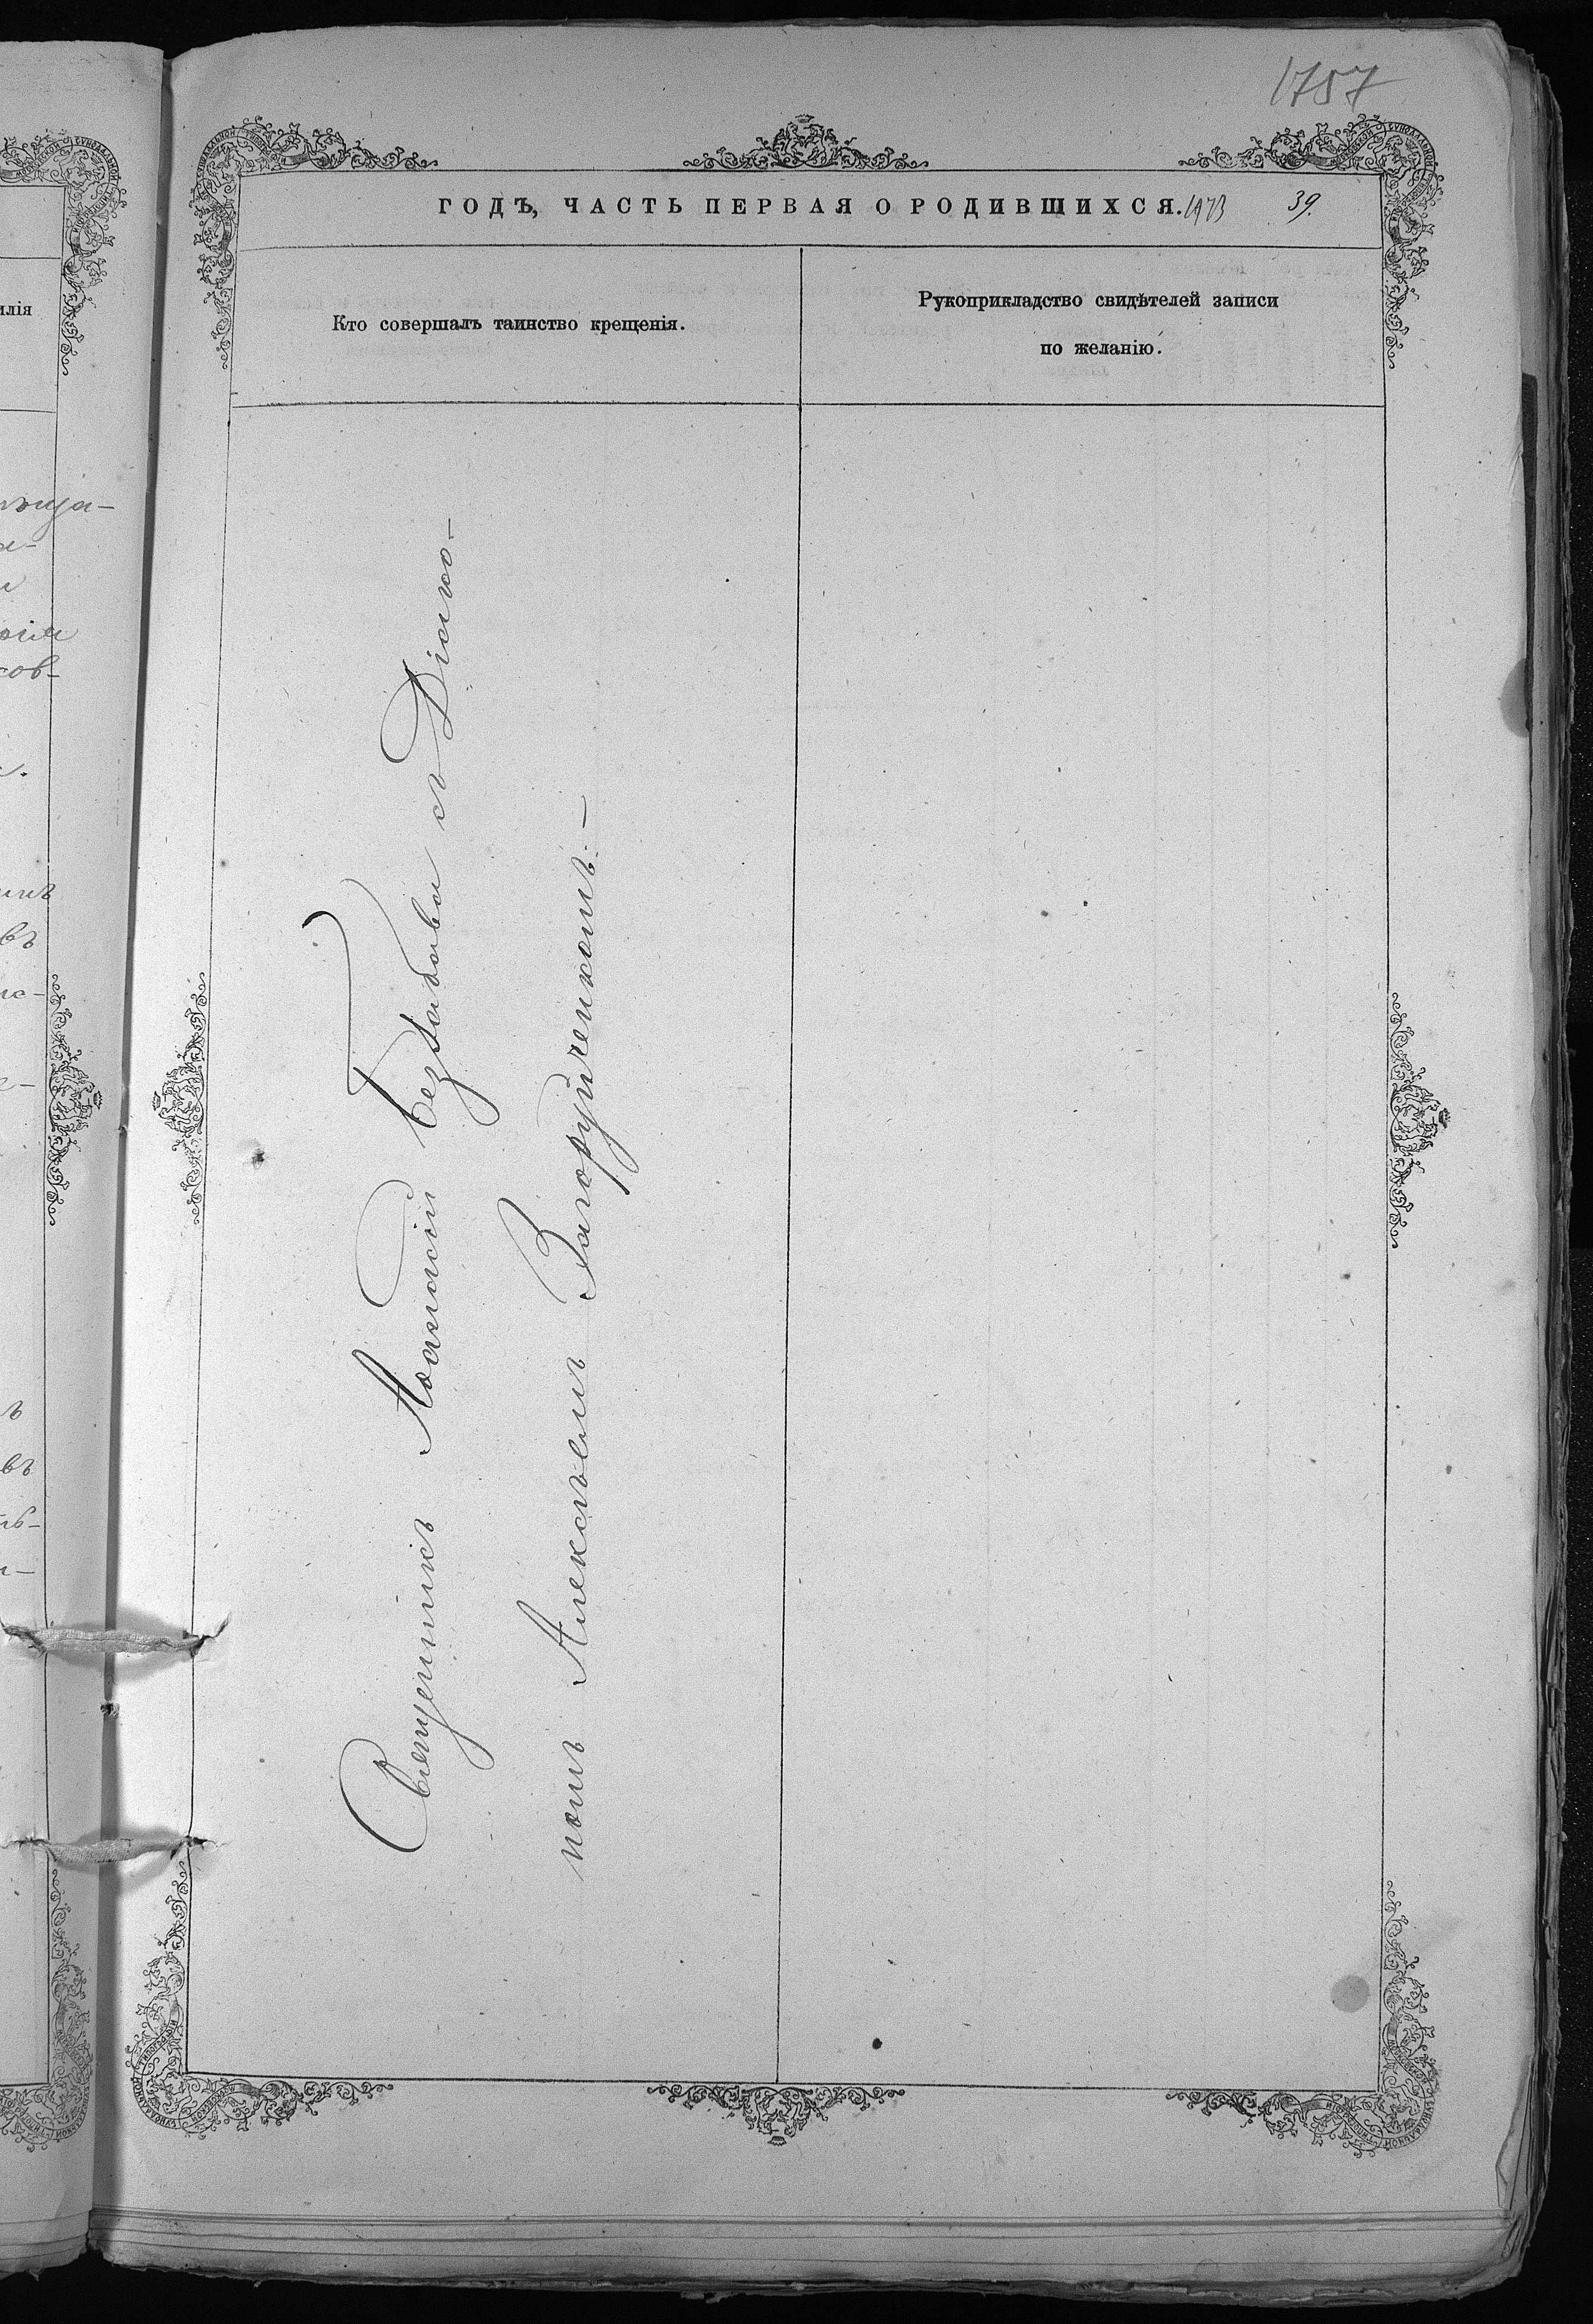 1757
ГОДЪ, ЧАСТЬ ПЕРВАЯ О РОДИВШИХСЯ. 39.
Кто совершалъ таинство крещенія.
Рукоприкладство свидѣтелей записи
по желанію.
Священникъ Аѳанасій Беззабава съ Діако-
номъ Алексѣемъ Загоруйченкомъ.—
илія